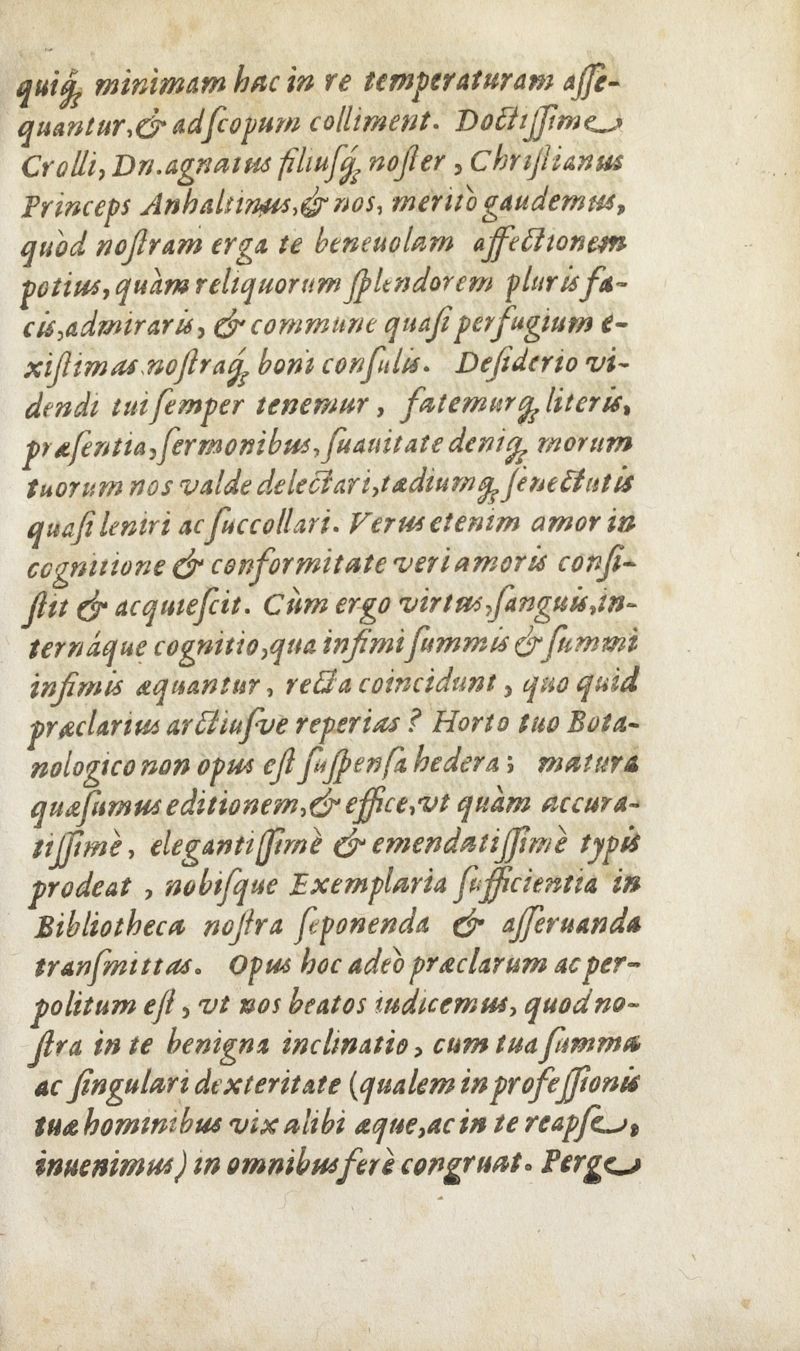 quiq́; minimam hac in re temperaturam aſſe-
quantur,& adſcopum colliment. Doctiſſime
Crolli, Dn. agnatus filiuſq́; noſter, Chriſtianus
Princeps Anhaltinus,& nos, meritò gaudemus,
quòd noſtram erga te beneuolam affectionem
potius, quàm reliquorum ſplendorem pluris fa-
cis,admiraris, & commune quaſi perfugium e-
xiſtimas noſtraq́; boni conſulis. Deſiderio vi-
dendi tui ſemper tenemur, fatemurq́; literis,
præſentia, ſermonibus, ſuauitate deniq́; morum
tuorum nos valde delectari,tædiumq́; ſenectutis
quaſi leniri ac ſuccollari. Verus etenim amor in
cognitione & conformitate veri amoris conſi-
ſtit & acquieſcit. Cùm ergo virtus,ſanguis,in-
ternáque cognitio,qua infimi ſummis & ſummi
infimis æquantur, recta coincidunt, quo quid
præclarius arctiuſve reperias? Horto tuo Bota-
nologico non opus eſt ſuſpenſa hedera; matura
quæſumus editionem,& effice,vt quàm accura-
tiſſimè, elegantiſſimè & emendatiſſimè typis
prodeat, nobiſque Exemplaria ſufficientia in
Bibliotheca noſtra ſeponenda & aſſeruanda
tranſmittas. Opus hoc adeò præclarum ac per-
politum eſt, vt nos beatos iudicemus, quod no-
ſtra in te benigna inclinatio, cum tua ſumma
ac ſingulari dexteritate (qualem in profeſſionis
tuæ hominibus vix alibi æque,ac in te reapſe,
inuenimus) in omnibus ferè congruat. Perge